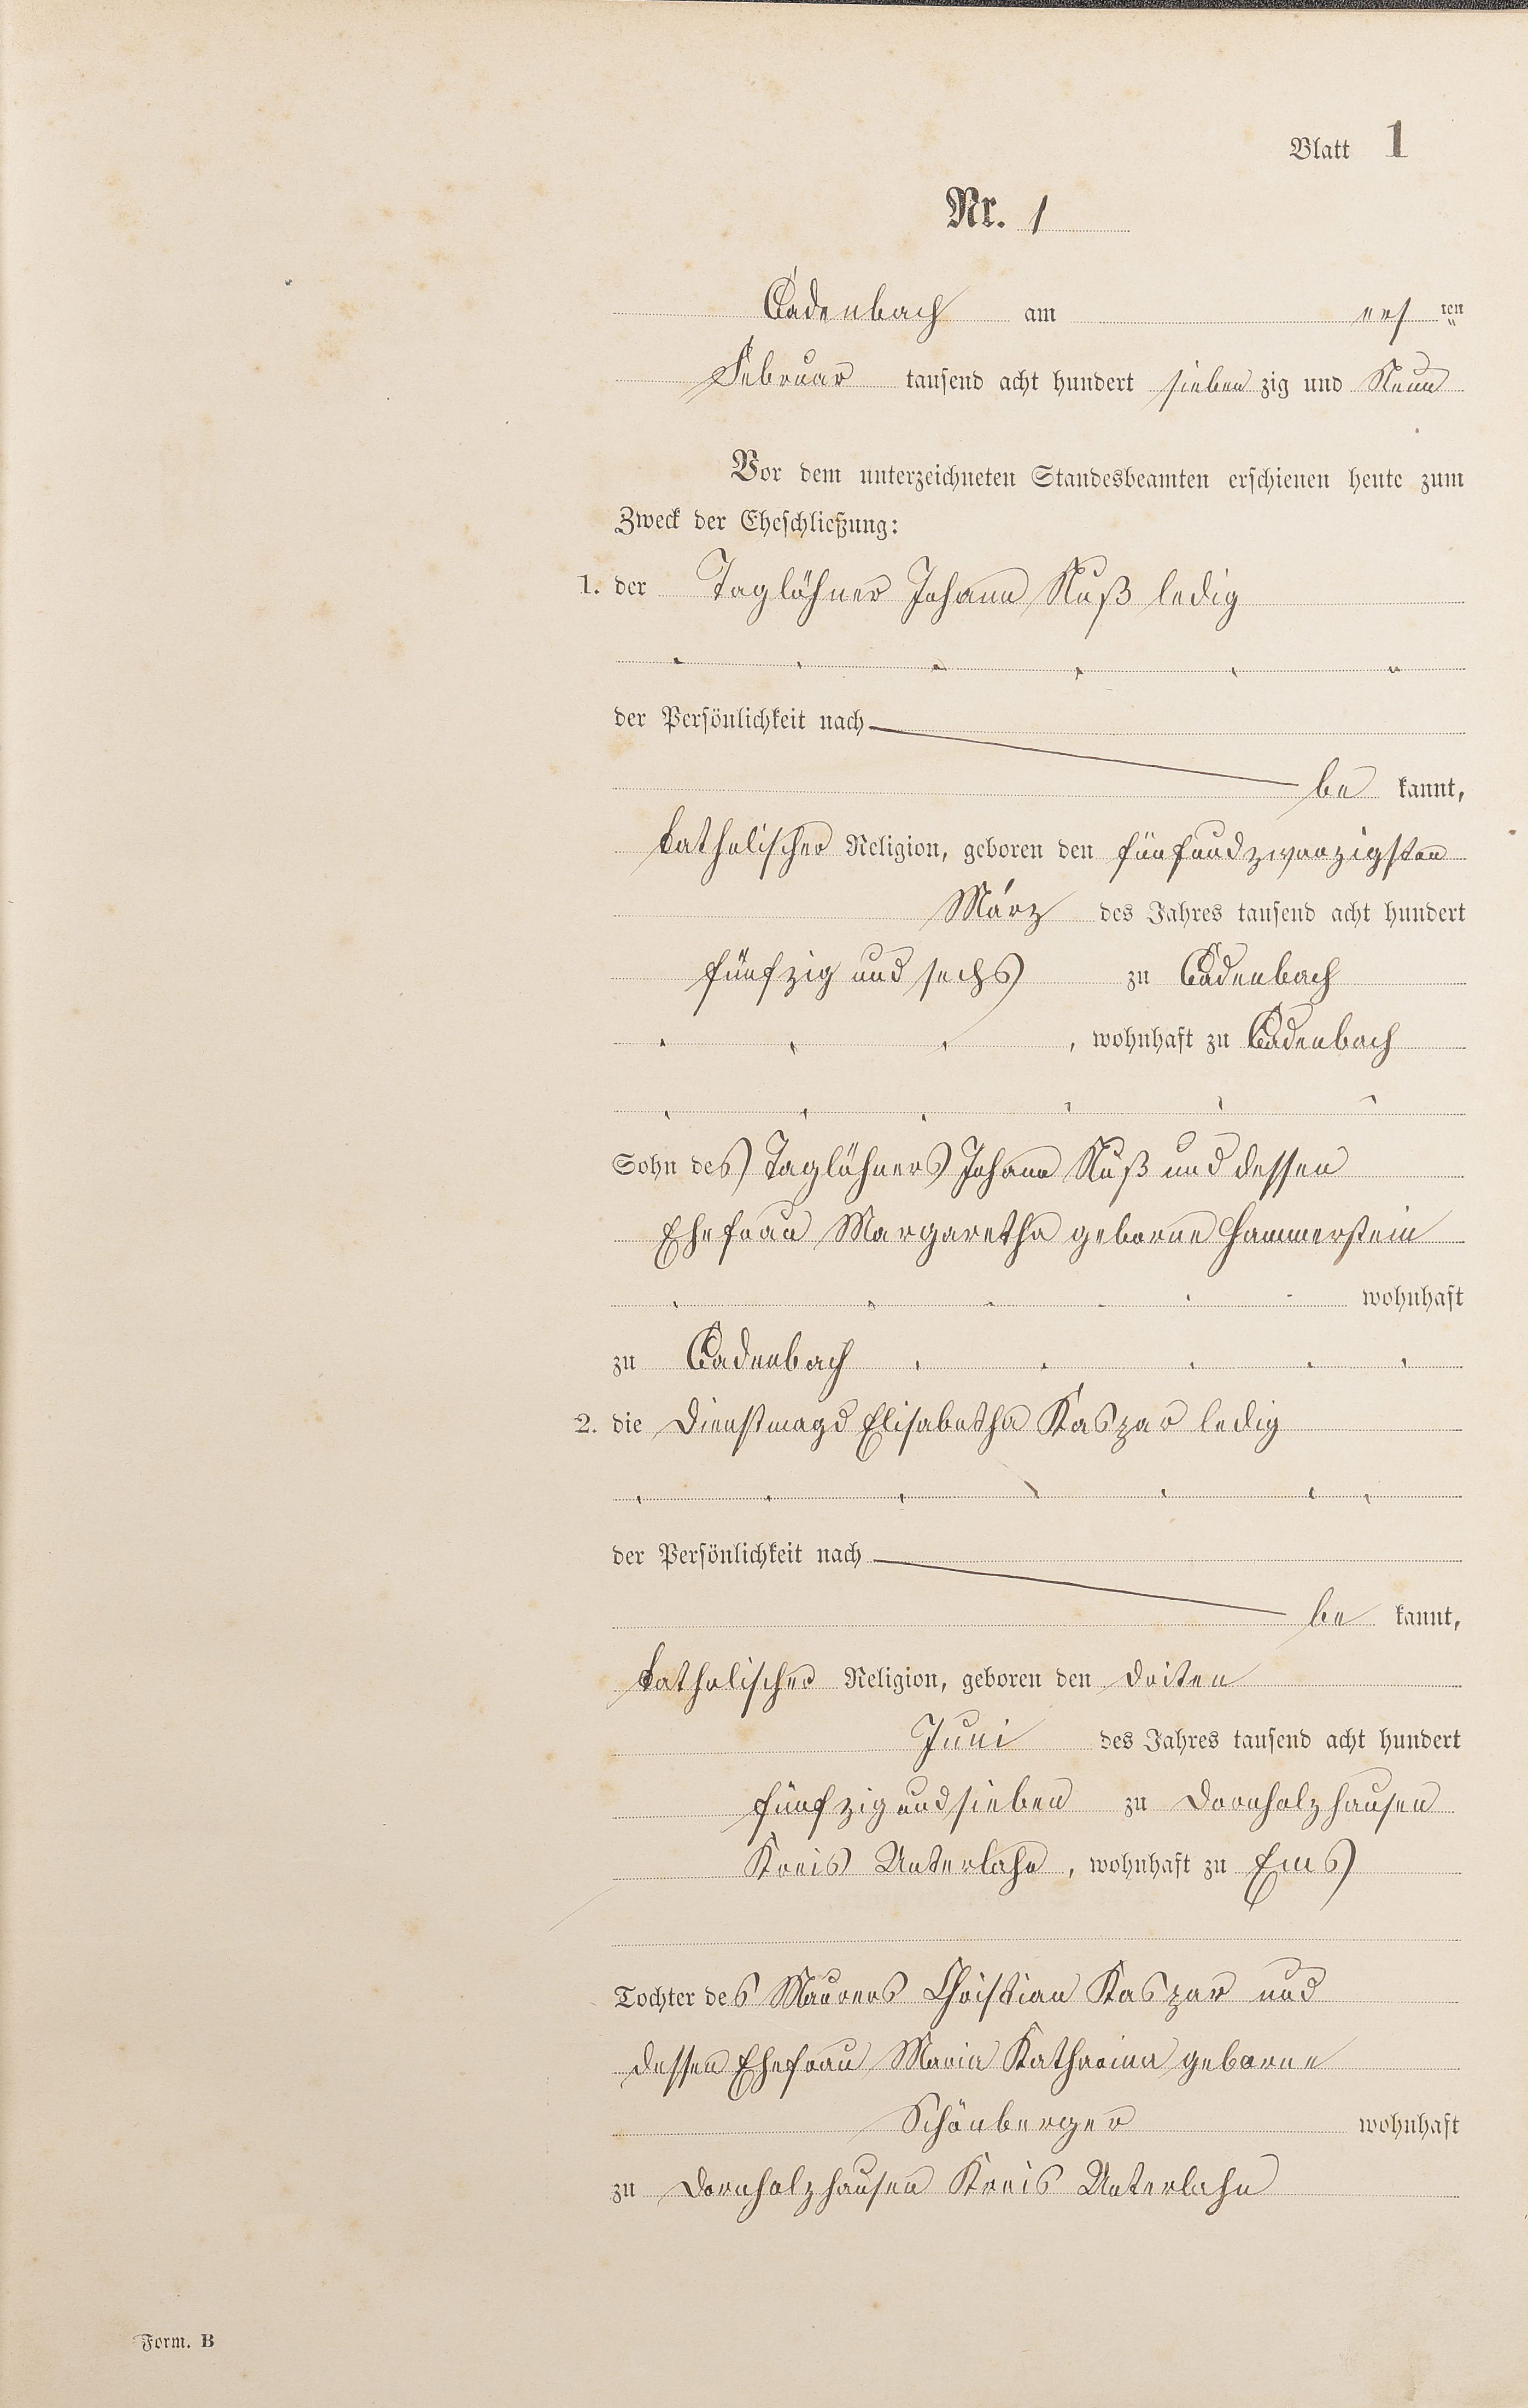 Blatt 1
Nr. 1
Cadenbach am ersten
Februar tausend acht hundert siebenzig und Neun
Vor dem unterzeichneten Standesbeamten erschienen heute zum
Zweck der Eheschließung:
1. der Taglöhner Johann Nuß ledig
der Persönlichkeit nach
be kannt,
katholischer Religion, geboren den fünfundzwanzigsten
März des Jahres tausend acht hundert
fünfzig und sechs zu Cadenbach
, wohnhaft zu Cadenbach
Sohn des Taglöhners Johann Nuß und dessen
Ehefrau Margaretha geborne Hammerstein
wohnhaft
zu Cadenbach
2. die Dienstmagd Elisabetha Kaspar ledig
der Persönlichkeit nach
be kannt,
katholischer Religion, geboren den driten
Juni des Jahres tausend acht hundert
fünfzig und sieben zu Dornholzhausen
Kreis Unterlahn, wohnhaft zu Ems
Tochter des Maurers Christian Kaspar und
dessen Ehefrau Maria Katharina geborne
Schönberger wohnhaft
zu Dornholzhausen Kreis Unterlahn
Form. B